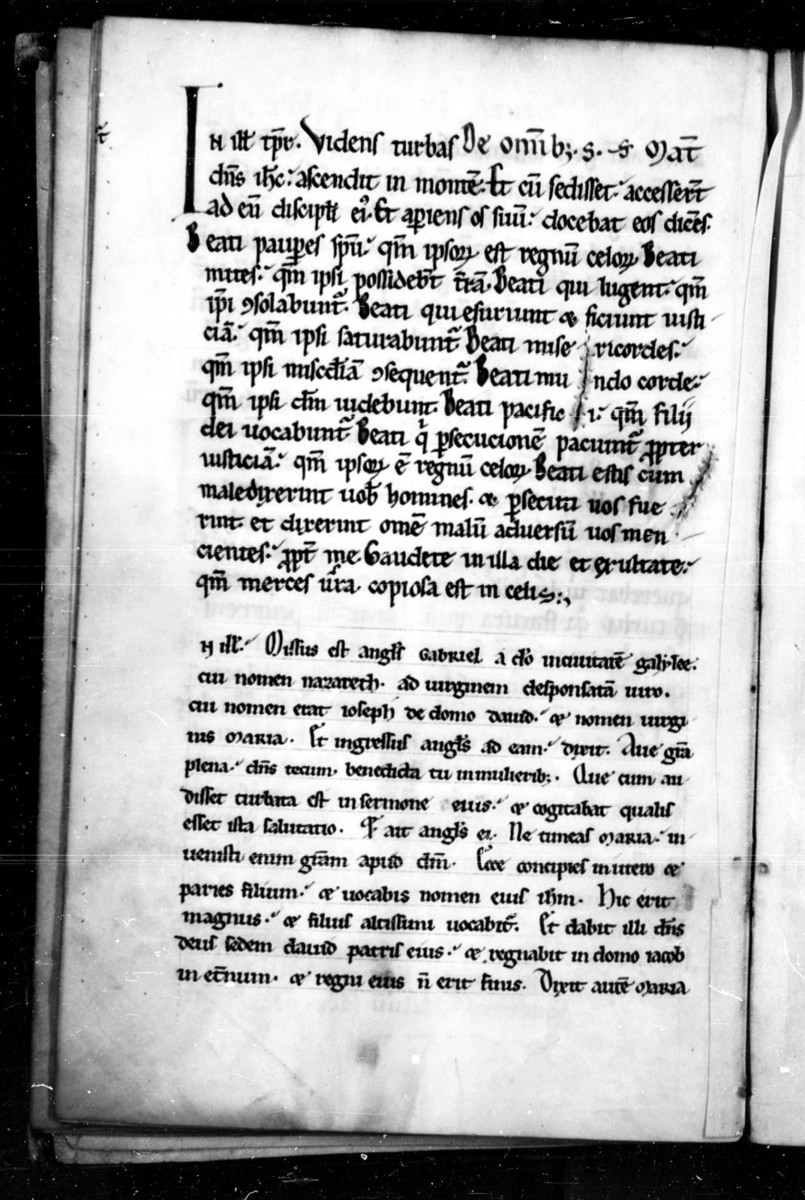 IN ill̄ tp̄r. Videns turbas De om̄ib; .s. S Mat̄
dn̄s ih̄c: ascendit in montē. Et cū sedisset: accesser̄t
ad eū discipl̄i ei᷒. Et ap̱iens os suū: docebat eos dicēs.
Beati paup̱es sp̄u: qm̄ ipsoꝝ est regnū celoꝝ. Beati
mites: qm̄ ipsi possideb̄t t̄rā. Beati qui lugent: qm̄
ip̄i ꝯsolabunt᷑. Beati qui esuriunt ⁊ siciunt iusti
ciā: qm̄ ipsi saturabunt᷑. Beati mise ricordes:
qm̄ ipsi misc̄diā ꝯsequent᷑. Beati mu ndo corde:
qm̄ ipsi dm̄ uidebunt. Beati pacific i: qm̄ filij
dei uocabunt᷑. Beati q̇ ꝑsecucionē paciunt᷑ ꝓpter
iusticiā: qm̄ ipsoꝝ ē regnū celoꝝ. Beati estis cum
maledixerint uob̄ homines. ⁊ ꝑsecuti uos fue
rint et dixerint om̄e malū adversū uos men
cientes: ꝓpt̄ me. Gaudete in illa die et exultate:
qm̄ merces ūra copiosa est in celis:,
N ill̄. Missus est angl̄s GABRIEL a do̅ in ciuitatē galilee:
cui nomen nazareth. ad uirginem desponsatā uiro.
cui nomen erat ioseph de domo dauid. ⁊ nomen uirgi
nis MARIA. Et ingressus angl̄s ad eam: dixit. Aue gr̄a
plena. dn̄s tecum. benedicta tu in mulierib;. Que cum au
disset turbata est in sermone eius: ⁊ cogitabat qualis
esset ista salutatio. Et ait angl̄s ei. Ne timeas MARIA: in
uenisti enim gr̄am apud dm̄. Ecce concipies in utero ⁊
paries filium: ⁊ uocabis nomen eius ih̄m. Hic erit
magnus: ⁊ filius altissimi uocabit᷑. Et dabit illi dn̄s
deus sedem dauid patris eius: ⁊ regnabit in domo iacob
in et̄num. ⁊ regni eius n̄ erit finis. Dixit autē MARIA